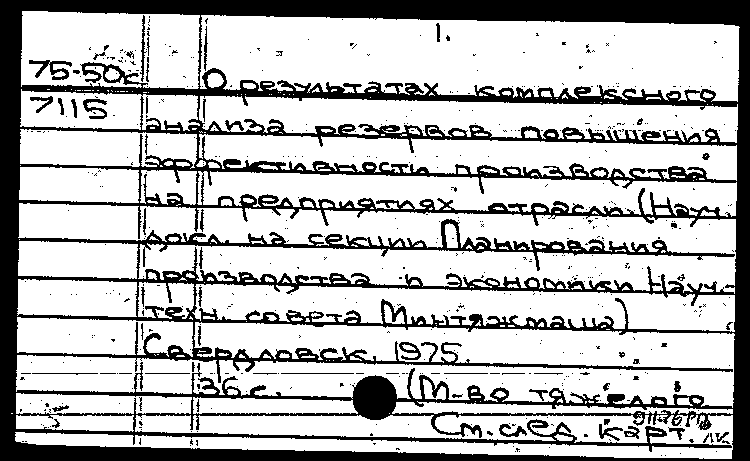 1.
75-50с О результатах комплексного
7115 анализа резервов повышения
эффективности производства
на предприятиях отрасли. (Науч.
докл. на секции Планирования
производства и экономики Науч.-
техн. совета Минтяжмаша)
Свердловск, 1975.
36 с. (М-во тяжелого
См. след. карт.